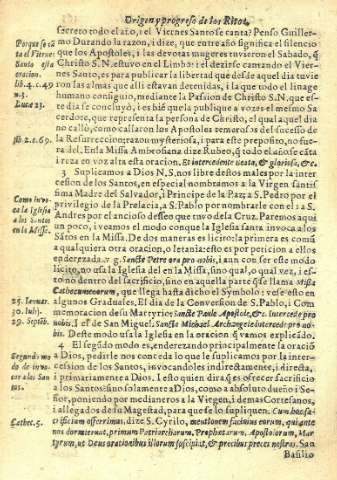 Origen y progreso de los Ritos,
secreto todo el año, i el Viernes Santo se canta? Penso Guiller-
mo Durando la razon, i dize, que entre año significa el silencio
que los Apostoles, i las devotas mugeres tuvieron el Sabado, q̃
Christo S. N. estuvo en el Limbo: i el dezirse cantando el Vier-
nes Santo, es para publicar la libertad que desde aquel dia tuvie
ron las almas que alli estavan detenidas, i la que todo el linage
humano consiguio, mediante la Passion de Christo S. N. que es-
te dia se concluyò; i es biẽ que la publique a vozes el mesmo Sa
cerdote, que representa la persona de Christo, el qual aquel dia
no callò, como callaron los Apostoles temerosos del sucesso de
la Resurreccion, razon muy seria, i para este proposito, no fue-
ra. En la Missa Ambrosiana dize Rubeo, q̃ todo el año se cã
ta i reza en voz alta esta oracion. Et intercedente beata, & gloriosa, &c.
3 Suplicamos a Dios N. S. nos libre destos males por la inter
cession de los Santos, en especial nombramos a la Virgen santiss
ima Madre del Salvador, i Principe de la Paz; a S. Pedro por el
privilegio de la Prelacia, a S. Pablo por nombrarle con el: i a S.
Andres por el ancioso desseo que tuvo de la Cruz. Paremos aqui
un poco, i veamos el modo conque la Iglesia santa invoca a los
Sãtos en la Missa. De dos maneras es licito; la primera es comũ
a qualquiera otra oracion, o letania: esto es por peticion a ellos
enderezada. v. g. Sancte Petre ora pro nobis, i aun con ser este modo
licito, no usa la Iglesia del en la Missa, sino qual, o qual vez, i es-
to no dentro del sacrificio, sino en aquella parte q̃ se llama Missa
Cathecumenorum, que llega hasta dicho el Symbolo: vese esto en
algunos Graduales. El dia de la Conversion de S. Pablo, i Com
memoracion de su Martyrio; Sancte Paule Apostole, &c. Intercede pro
nobis. I el de San Miguel. Sancte Michael Archangele intercede pro no-
bis. Deste modo usa la Iglesia en la oracion q̃ vamos explicãdo.
4 El segũdo modo es, enderezando principalmente la oraciõ
a Dios, pedirle nos conceda lo que le suplicamos por la inter-
cession de los Santos, invocandoles indirectamente, i directa,
i primariamente a Dios. I esto quien dirà q̃ es ofrecer sacrificio
a los Santos: sino solamente a Dios, como a absoluto dueño i Se-
ñor, poniendo por medianeros a la Virgen, i demas Cortesanos,
i allegados de su Magestad, para que se lo supliquen. Cum hoc sa-
crificium offerimus, dize S. Cyrilo, mentionem facimus eorum, qui ante
nos dormierunt, primum Patriarcharum, Prophetarum, Apostolorum, Mar
tyrum, ut Deus orationibus illorum suscipiat, & precibus preces nostras. San
Basilio
Porque se cã
ta el Viernes
Santo esta
oracion.
lib. 4. c. 49
n. 5.
Luca 23.
lib. 2. c. 69.
Como invo-
ca la Iglesia
a los Santos
en la Missa.
25. Ianuar.
30. Iulij.
29. Septẽb.
Segundo mo
do de invo-
car a los San
tos.
Cathec. 5.